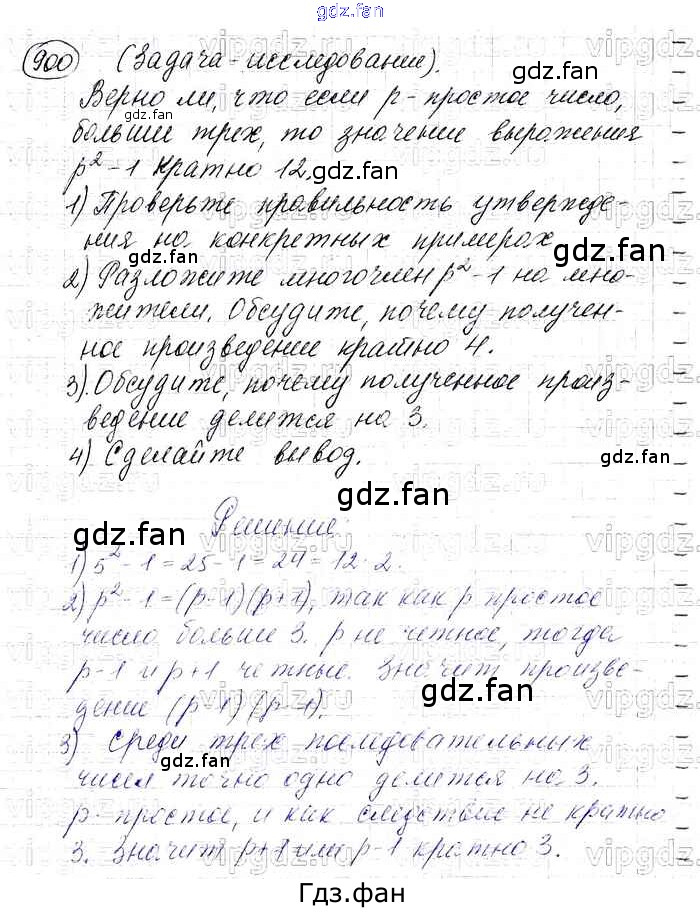 gdz.fan
900 (Задача-исследование).
Верно ли, что если p - простое число,
больше трех, то значение выражения
p² - 1 кратно 12.
1) Проверьте правильность утвержде-
ния на конкретных примерах
2) Разложите многочлен p² - 1 на мно-
жители. Обсудите, почему получен-
ное произведение кратно 4.
3) Обсудите, почему полученное произ-
ведение делится на 3.
4) Сделайте вывод.
Решение:
1) 5² - 1 = 25 - 1 = 24 = 12 · 2.
2) p² - 1 = (p-1)(p+1), так как p простое
число больше 3. p не четное, тогда
p-1 и p+1 четные. Значит произве-
дение (p-1)(p-1).
3) Среди трех последовательных
чисел точно одно делится на 3.
p - простое, и как следствие не кратно
3. Значит p+1 или p-1 кратно 3.
Гдз.фан